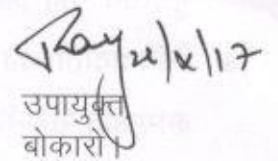 Ray 21/x/17
उपायुक्त
बोकारो।